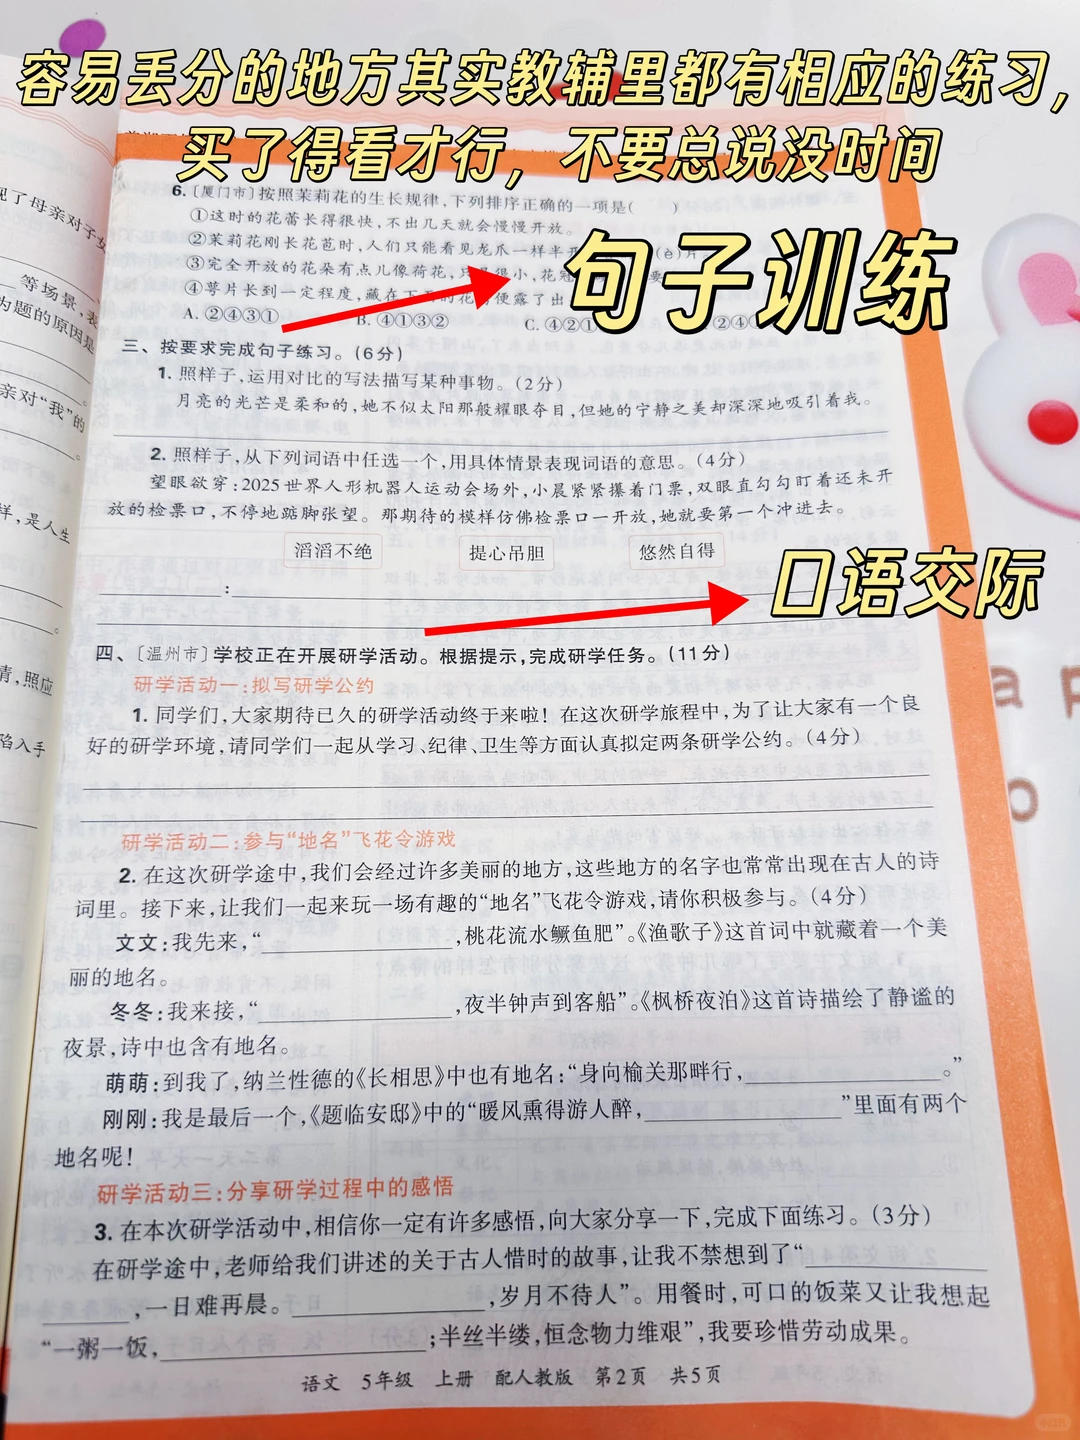 容易丢分的地方其实教辅里都有相应的练习，
买了得看才行，不要总说没时间
6.〔厦门市〕按照茉莉花的生长规律，下列排序正确的一项是（ ）
①这时的花蕾长得很快，不出几天就会慢慢开放。
②茉莉花刚长花苞时，人们只能看见龙爪一样半开
③完全开放的花朵有点儿像荷花，只是很小，花冠
④萼片长到一定程度，藏在下面的花 便露了出
句子训练
A. ②④③① B. ④①③② C. ④②①
三、按要求完成句子练习。（6分）
1. 照样子，运用对比的写法描写某种事物。（2分）
月亮的光芒是柔和的，她不似太阳那般耀眼夺目，但她的宁静之美却深深地吸引着我。
2. 照样子，从下列词语中任选一个，用具体情景表现词语的意思。（4分）
望眼欲穿：2025世界人形机器人运动会场外，小晨紧紧攥着门票，双眼直勾勾盯着还未开
放的检票口，不停地踮脚张望。那期待的模样仿佛检票口一开放，她就要第一个冲进去。
滔滔不绝 提心吊胆 悠然自得
：
口语交际
四、〔温州市〕学校正在开展研学活动。根据提示，完成研学任务。（11分）
研学活动一：拟写研学公约
1. 同学们，大家期待已久的研学活动终于来啦！在这次研学旅程中，为了让大家有一个良
好的研学环境，请同学们一起从学习、纪律、卫生等方面认真拟定两条研学公约。（4分）
研学活动二：参与“地名”飞花令游戏
2. 在这次研学途中，我们会经过许多美丽的地方，这些地方的名字也常常出现在古人的诗
词里。接下来，让我们一起来玩一场有趣的“地名”飞花令游戏，请你积极参与。（4分）
文文：我先来，“____，桃花流水鳜鱼肥”。《渔歌子》这首词中就藏着一个美
丽的地名。
冬冬：我来接，“____，夜半钟声到客船”。《枫桥夜泊》这首诗描绘了静谧的
夜景，诗中也含有地名。
萌萌：到我了，纳兰性德的《长相思》中也有地名：“身向榆关那畔行，____。”
刚刚：我是最后一个，《题临安邸》中的“暖风熏得游人醉，____”里面有两个
地名呢！
研学活动三：分享研学过程中的感悟
3. 在本次研学活动中，相信你一定有许多感悟，向大家分享一下，完成下面练习。（3分）
在研学途中，老师给我们讲述的关于古人惜时的故事，让我不禁想到了“____
____，一日难再晨。____，岁月不待人”。用餐时，可口的饭菜又让我想起
“一粥一饭，____；半丝半缕，恒念物力维艰”，我要珍惜劳动成果。
语文 5年级 上册 配人教版 第2页 共5页
现了母亲对子女
等场景，表
为题的原因是
亲对“我”的
样，是人生
情，照应
陷入手